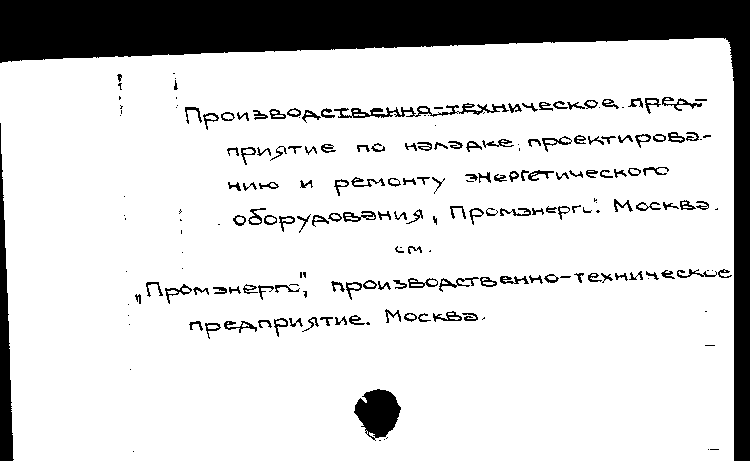 Производственно-техническое пред-
приятие по наладке, проектирова-
нию и ремонту энергетического
оборудования „Промэнерго". Москва.
см.
„Промэнерго", производственно-техническое
предприятие. Москва.